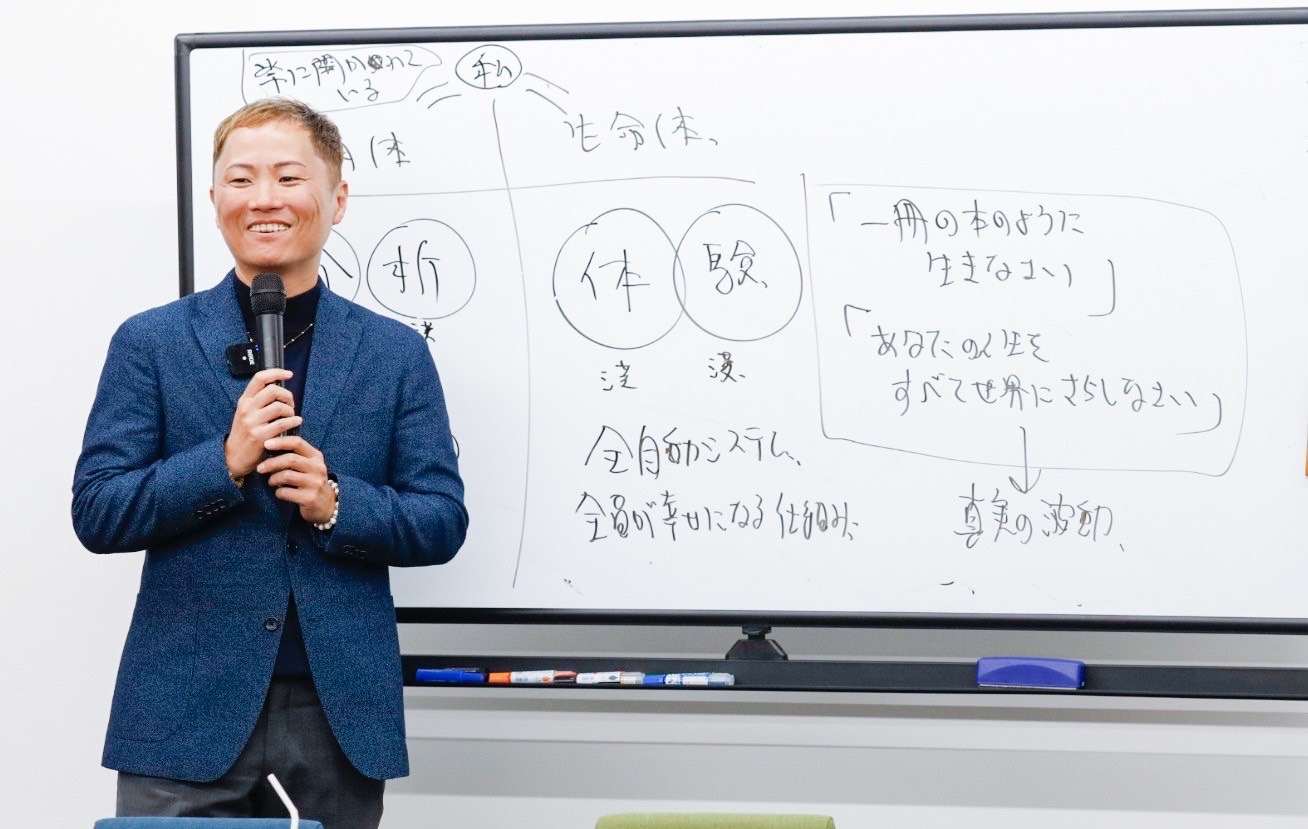 常に開かれて
いる
私
体
生命体、
析
体 験
全自動システム、
全員が幸せになる仕組み、
「一冊の本のように
生きなさい」
「あなたの人生を
すべて世界にさらしなさい」
真実の波動、